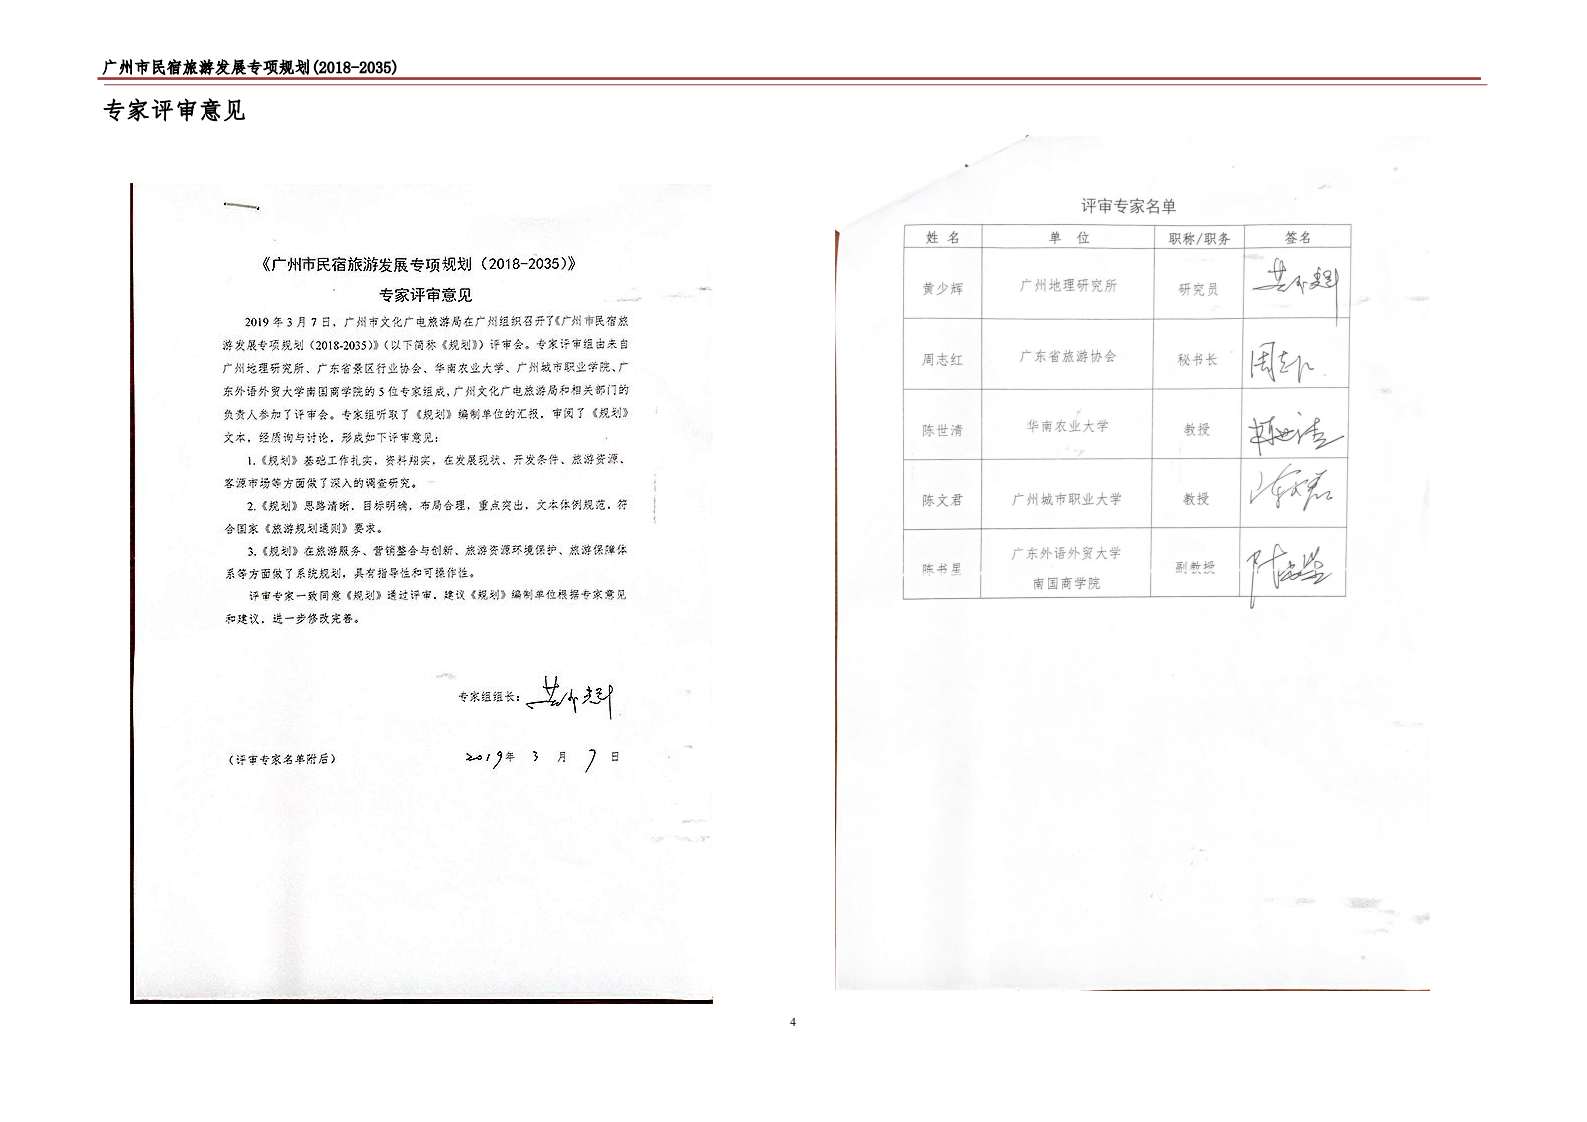 广州市民宿旅游发展专项规划(2018-2035)
专家评审意见
《广州市民宿旅游发展专项规划（2018-2035)》
专家评审意见
2019 年 3 月 7 日，广州市文化广电旅游局在广州组织召开了《广州市民宿旅
游发展专项规划（2018-2035)》（以下简称《规划》）评审会。专家评审组由来自
广州地理研究所、广东省景区行业协会、华南农业大学、广州城市职业学院、广
东外语外贸大学南国商学院的 5 位专家组成，广州文化广电旅游局和相关部门的
负责人参加了评审会。专家组听取了《规划》编制单位的汇报，审阅了《规划》
文本，经质询与讨论，形成如下评审意见：
1.《规划》基础工作扎实，资料翔实，在发展现状、开发条件、旅游资源、
客源市场等方面做了深入的调查研究。
2.《规划》思路清晰，目标明确，布局合理，重点突出，文本体例规范，符
合国家《旅游规划通则》要求。
3.《规划》在旅游服务、营销整合与创新、旅游资源环境保护、旅游保障体
系等方面做了系统规划，具有指导性和可操作性。
评审专家一致同意《规划》通过评审，建议《规划》编制单位根据专家意见
和建议，进一步修改完善。
专家组组长：黄少辉
（评审专家名单附后） 2019年 3 月 7 日
评审专家名单
姓 名 单 位 职称/职务 签名
黄少辉 广州地理研究所 研究员 黄少辉
周志红 广东省旅游协会 秘书长 周志红
陈世清 华南农业大学 教授 陈世清
陈文君 广州城市职业大学 教授 陈文君
陈书星 广东外语外贸大学 副教授
南国商学院
4